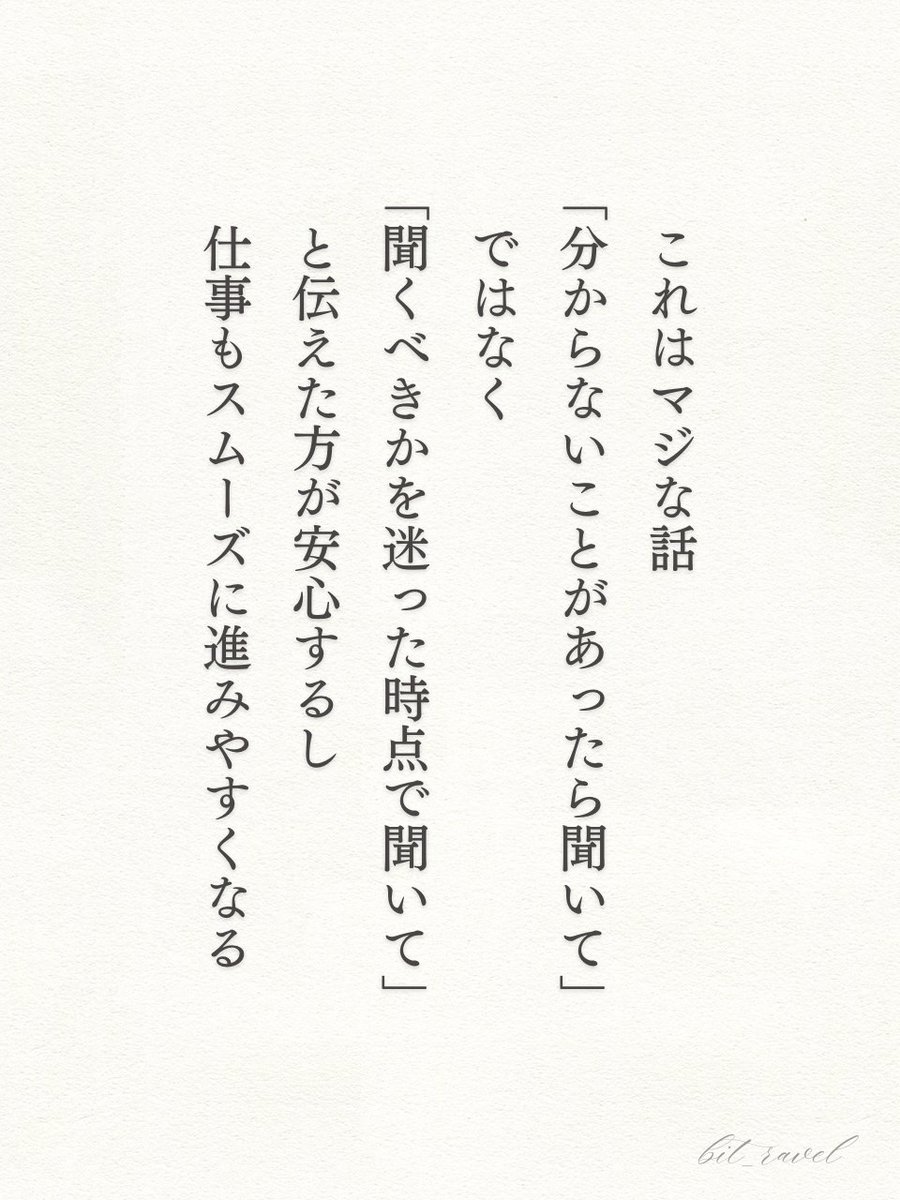 これはマジな話
「分からないことがあったら聞いて」
ではなく
「聞くべきかを迷った時点で聞いて」
と伝えた方が安心するし
仕事もスムーズに進みやすくなる
bit_ravel